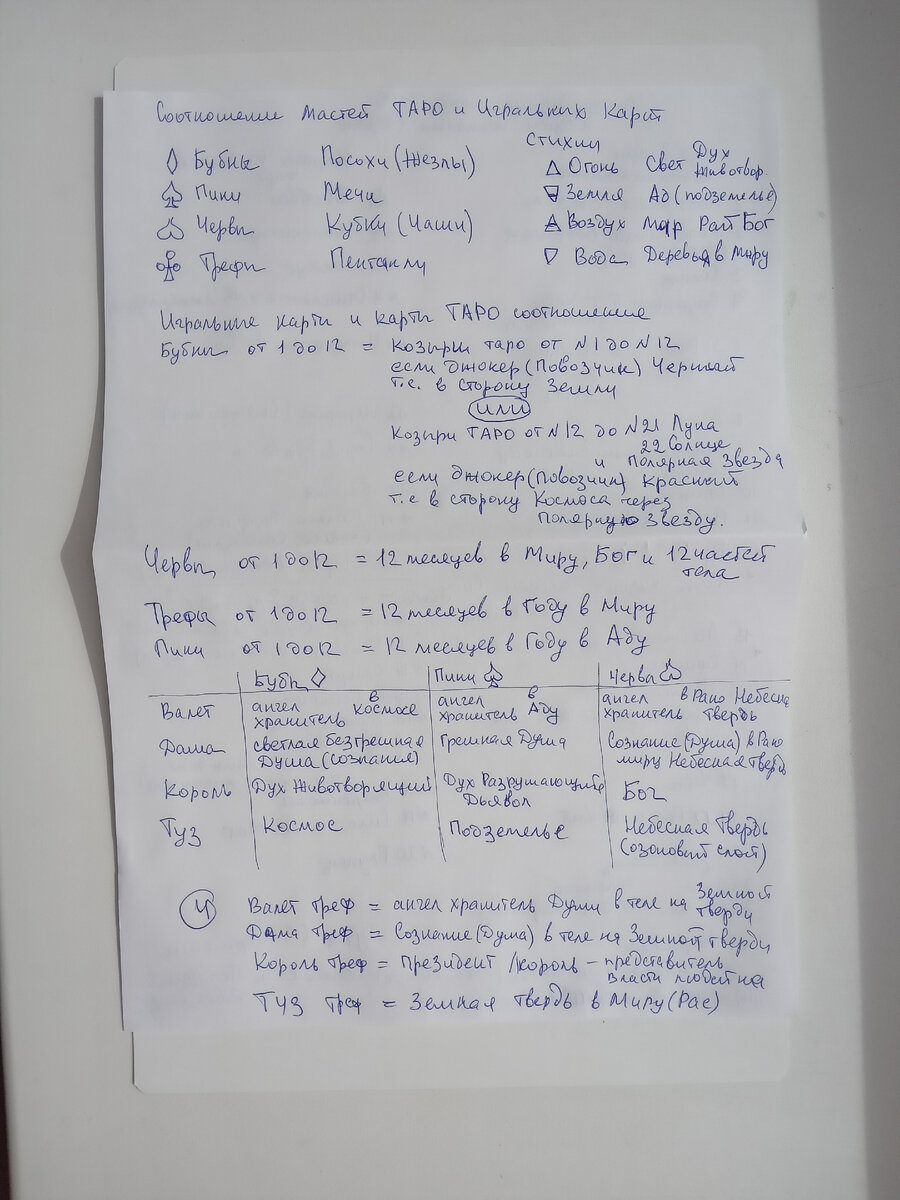 Соотношение мастей ТАРО и Игральных Карт
Стихии
Бубны Посохи (Жезлы) Огонь Свет Дух Животвор.
Пики Мечи Земля Ад (подземелье)
Червы Кубки (Чаши) Воздух Мир Рай Бог
Трефы Пентакли Вода Деревья в Миру
Игральные карты и карты ТАРО соотношение
Бубны от 1 до 12 = Козыри таро от N1 до N12
если джокер (Повозчик) Черный
т.е. в сторону Земли
или
Козыри ТАРО от N12 до N21 Луна
22 Солнце
и Полярная Звезда
если джокер (Повозчик) Красный
т.е в сторону Космоса через
Полярную Звезду.
Червы от 1 до 12 = 12 месяцев в Миру, Бог и 12 частей
тела
Трефы от 1 до 12 = 12 месяцев в Году в Миру
Пики от 1 до 12 = 12 месяцев в Году в Аду
Бубы Пики Черва
Валет ангел хранитель в Космосе ангел хранитель в Аду ангел хранитель в Раю Небесна Твердь
Дама светлая безгрешная Душа (сознания) Грешная Душа Сознание (Душа) в Раю миру Небесная Твердь
Король Дух Животворящий Дух Разрушающий Дьявол Бог
Туз Космос Подземелье Небесная Твердь (озоновый слой)
Ч Валет треф = ангел хранитель Души в теле на Земной
тверди
Дама треф = Сознание (Душа) в теле на Земной тверди
Король треф = президент /король - представитель
власти людей на
Туз треф = Земная твердь в Миру (Рае)